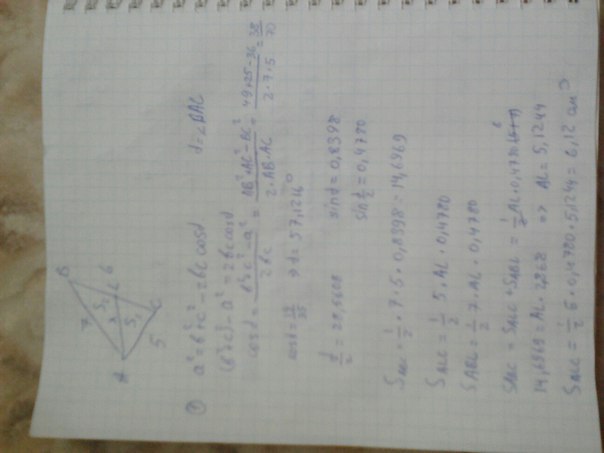 B
7
S₂
6
A
L
S₁
5
C
① a² = b² + c² - 2bc cosα α = ∠BAC
(b² + c²) - a² = 2bc cosα
cosα = (b² + c² - a²)/(2bc) = (AB² + AC² - BC²)/(2·AB·AC) = (49 + 25 - 36)/(2·7·5) = 38/70
cosα = 19/35 α = 57,1216°
α/2 = 28,5608 sinα = 0,8398
sin α/2 = 0,4780
S ABC = 1/2 · 7 · 5 · 0,8398 = 14,6969
S ALC = 1/2 5 · AL · 0,4780
S ABL = 1/2 7 · AL · 0,4780
S ABC = S ALC + S ABL = 1/2 AL · 0,4780
14,6969 = AL · 2,868 => AL = 5,1244
S ALC = 1/2 · 0,4780 · 5,1244 = 6,12 см